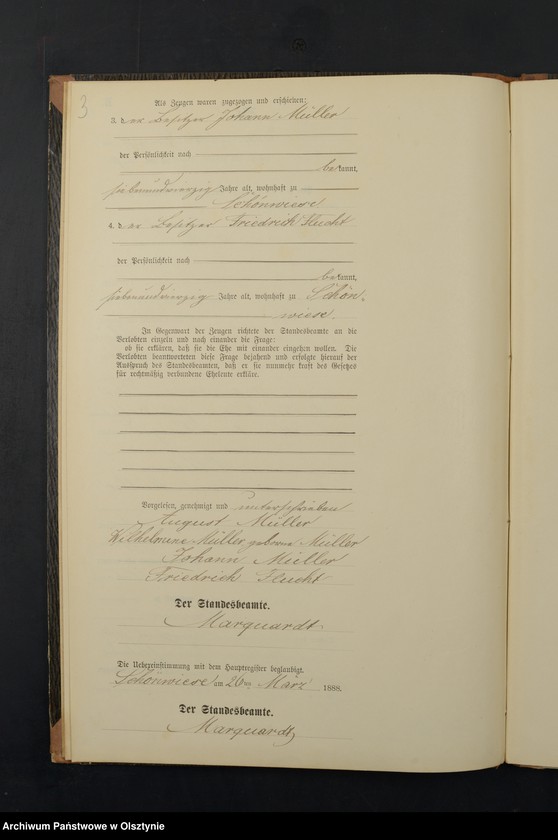 3
Als Zeugen waren zugezogen und erschienen:
3. der Besitzer Johann Müller
der Persönlichkeit nach
bekannt,
siebenundvierzig Jahre alt, wohnhaft zu
Schönwiese
4. der Besitzer Friedrich Flucht
der Persönlichkeit nach
bekannt,
siebenundvierzig Jahre alt, wohnhaft zu Schön-
wiese.
In Gegenwart der Zeugen richtete der Standesbeamte an die
Verlobten einzeln und nach einander die Frage:
ob sie erklären, daß sie die Ehe mit einander eingehen wollen. Die
Verlobten beantworteten diese Frage bejahend und erfolgte hierauf der
Ausspruch des Standesbeamten, daß er sie nunmehr kraft des Gesetzes
für rechtmäßig verbundene Eheleute erkläre.
Vorgelesen, genehmigt und unterschrieben
August Müller
Wilhelmine Müller geborene Müller
Johann Müller
Friedrich Flucht
Der Standesbeamte.
Marquardt.
Die Uebereinstimmung mit dem Hauptregister beglaubigt.
Schönwiese am 26ten März 1888.
Der Standesbeamte.
Marquardt
Archiwum Państwowe w Olsztynie